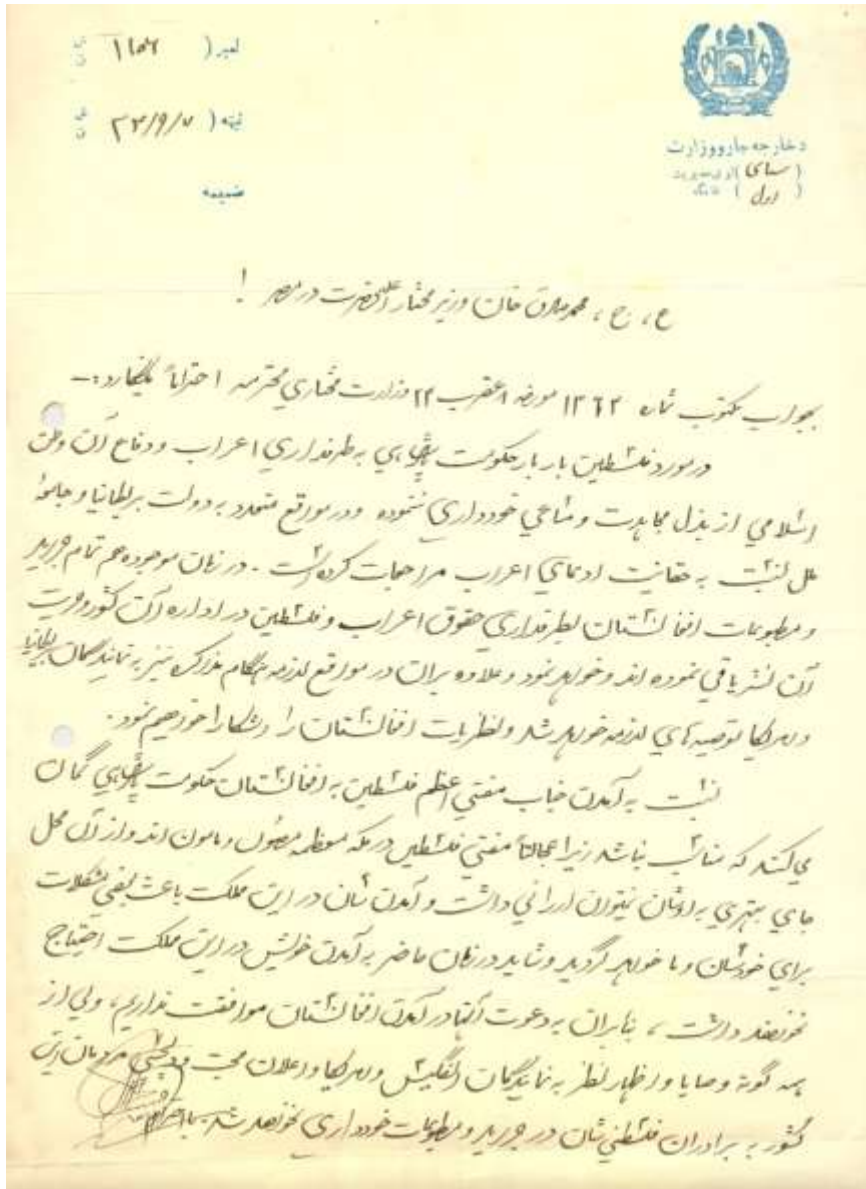 نمبر ( ۱۱۵۶ )
نېټه ( ۲۳/۹/۷ )
ضمیمه
دخارجه چارو وزارت
( سیاسی )
( اول )
ع، ج، محمد صادق خان وزیر مختار اعلیحضرت در مصر !
بجواب مکتوب شماره ۱۳۶۲ مورخه ۸ عقرب ۲۳ وزارت مختاری محترمه احتراماً مینگارد :ـ
در مورد فلسطین بار بار حکومت شاهی به طرفداری اعراب و دفاع آن وطن
اسلامی از بذل مجاهدت و مساعی خودداری ننموده و در مواقع متعدد به دولت بریطانیا و جامعهٔ
ملل نسبت به حقانیت ادعای اعراب مراجعات کرده است ـ در زمان موجوده هم تمام جراید
و مطبوعات افغانستان بطرفداری حقوق اعراب و فلسطین در اداره آن کشور و حریت
آن نشریاتی نموده اند و خواهد نمود و علاوه بران در مواقع لازمه هنگام مذاکره نیز به نمایندگان بریطانیا
و امریکا توصیه های لازمه خواهد شد و نظریات افغانستان را آشکارا خواهیم نمود .
نسبت به آمدن جناب مفتی اعظم فلسطین به افغانستان حکومت شاهی گمان
می کند که مناسب نباشد زیرا عجالتاً مفتی فلسطین در مکه معظمه مصئون و مامون اند و از آن محل
جای بهتری به اوشان نمیتوان ارزانی داشت و آمدن شان در این مملکت باعث بعضی مشکلات
برای خودشان و ما خواهد گردید و شاید در زمان حاضر به آمدن خویش در این مملکت احتیاج
نخواهند داشت ، بنابران به دعوت آنها در آمدن افغانستان موافقت نداریم، ولی از
همه گونه وصایا و اظهار نظر به نمایندگان انگلیس و امریکا و اعلان محبت و دلچسپی مردمان این
کشور به برادران فلسطینی شان در جراید و مطبوعات خودداری نخواهد شد